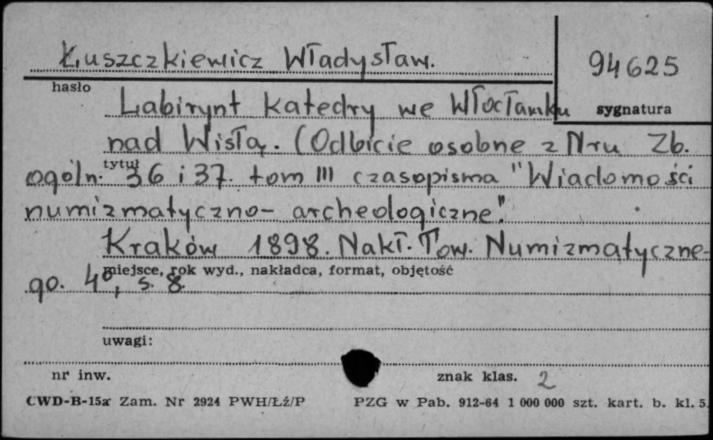 Łuszczkiewicz Władysław.
94625
hasło
sygnatura
Labirynt katedry we Włocławku
nad Wisłą. (Odbicie osobne z Nru Zb.
tytuł
ogóln. 36 i 37. tom III czasopisma "Wiadomości
numizmatyczno- archeologiczne".
Kraków 1898. Nakł. Tow. Numizmatyczne-
miejsce, rok wyd., nakładca, format, objętość
go. 4°, s. 8.
uwagi:
nr inw.
znak klas. 2
CWD-B-15a Zam. Nr 2924 PWH/Łź/P PZG w Pab. 912-64 1 000 000 szt. kart. b. kl. 5.